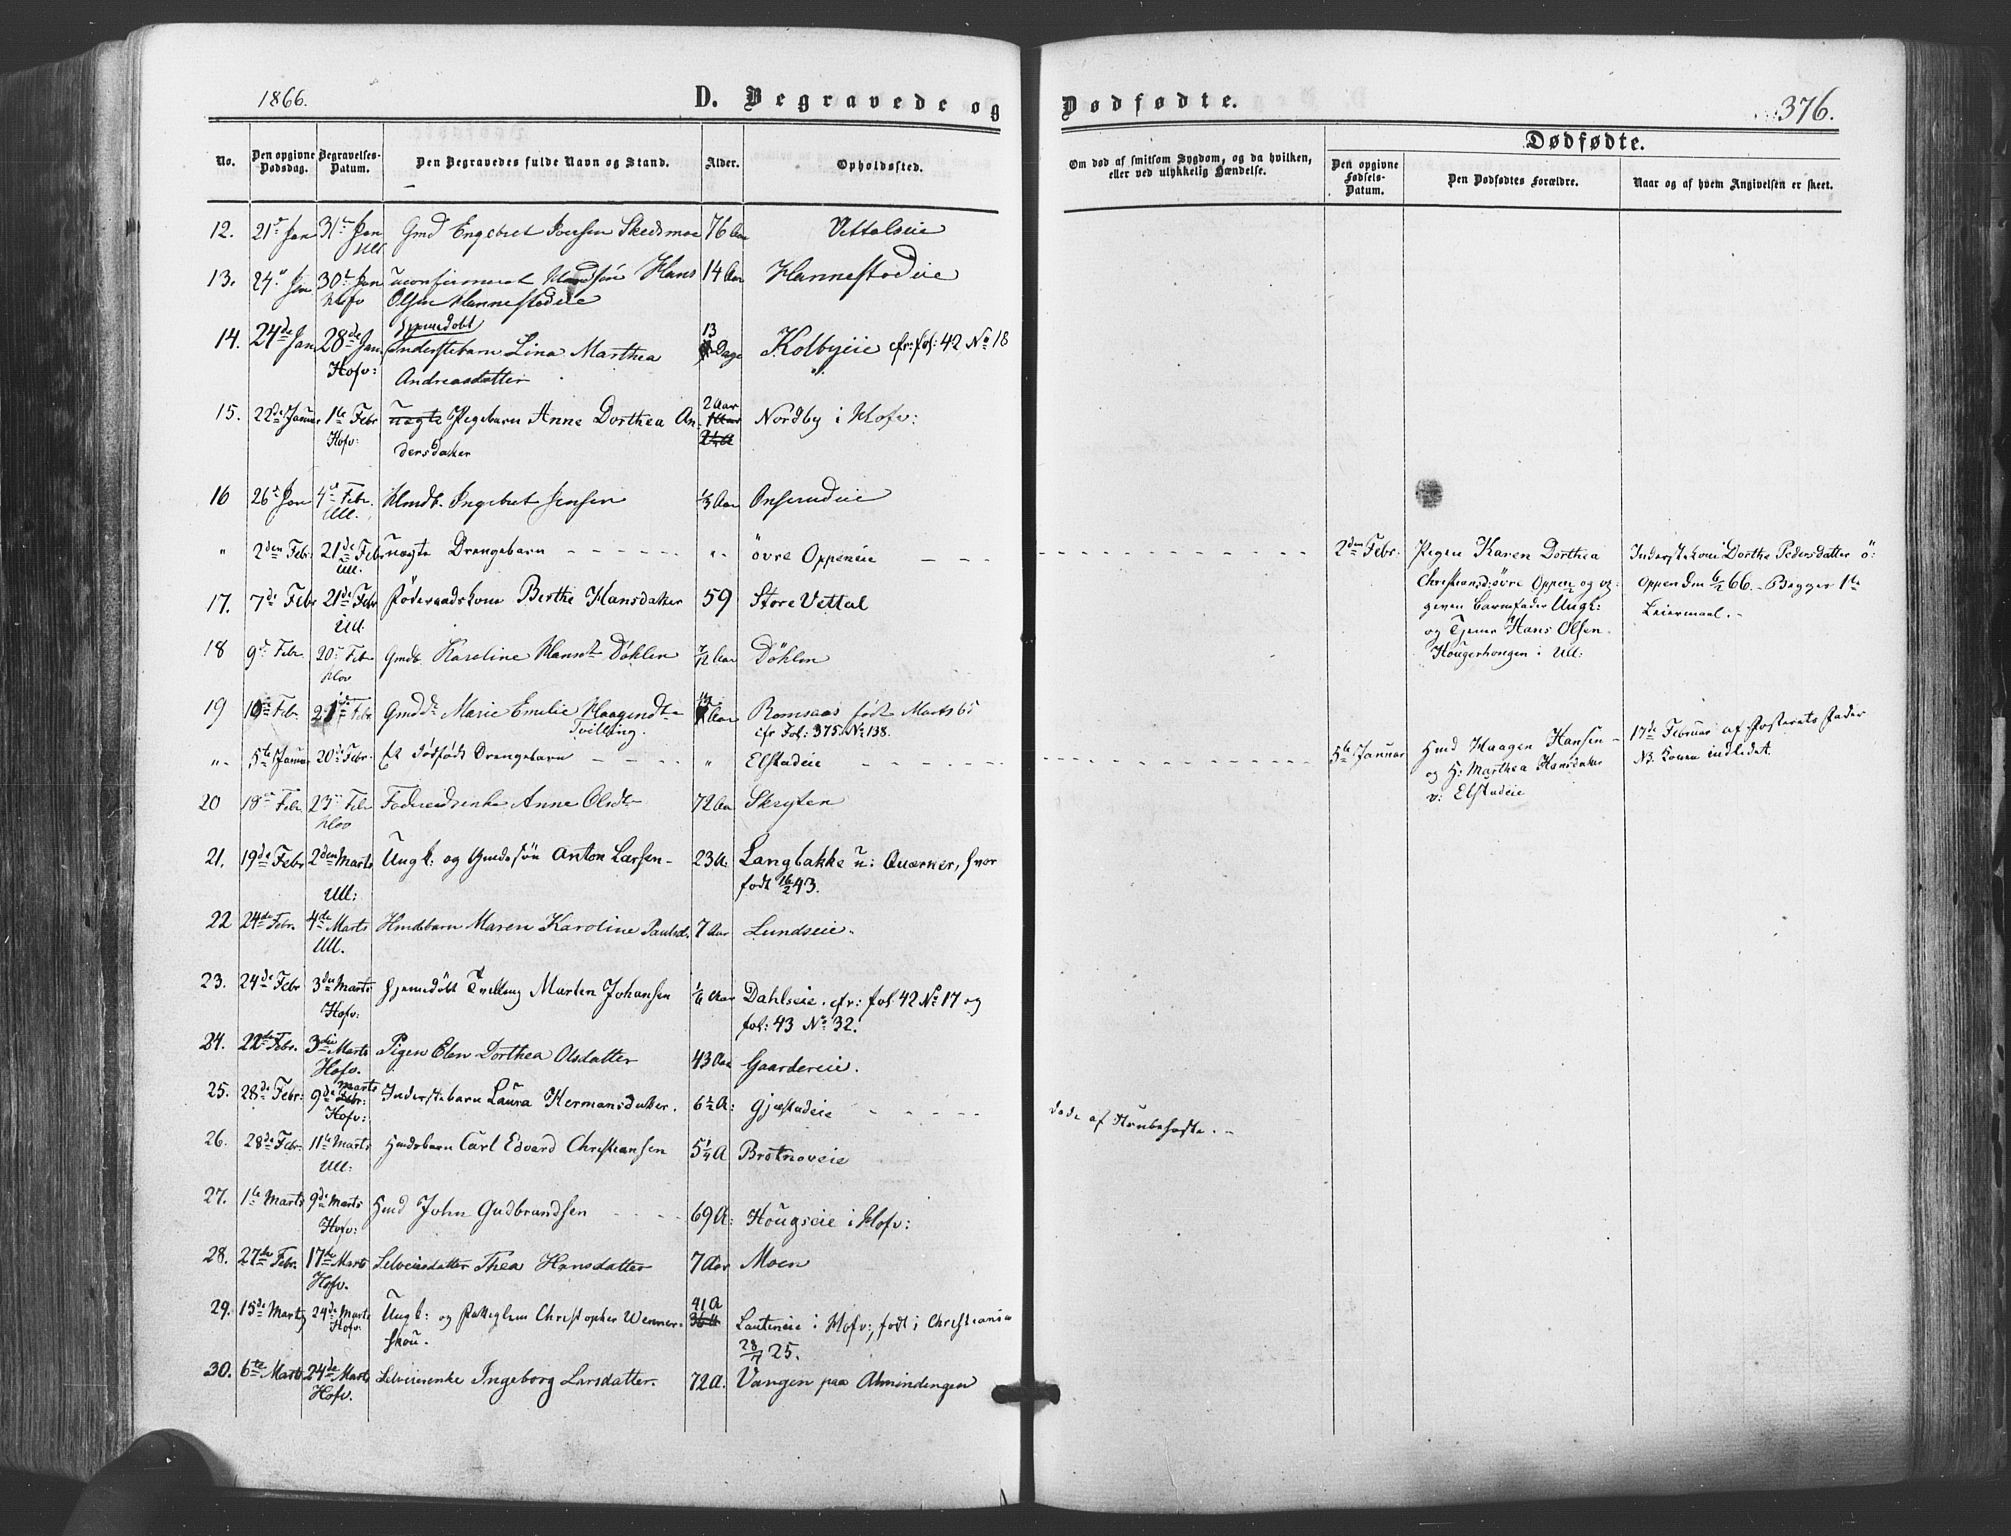 1866.
D. Begravede og Dødfødte.
376.
Dødfødte.
No. Den opgivne Dødsdag. Begravelses-Datum. Den Begravedes fulde Navn og Stand. Alder. Opholdssted. Om død af smitsom Sygdom, og da hvilken, eller ved ulykkelig Hændelse. Den opgivne Fødsels-Datum. Den Dødfødtes Forældre. Naar og af hvem Angivelsen er skeet.
12. 21 Jan 31 Jan Gmd Engebret Iversen Skedsmoe 76 Aar Vettalseie
Ull
13. 24 Jan 30 Jan uconfirmeret Hans 14 Aar Hannestadeie
Hofv Olsen Hannestadeie
14. 24de Jan 28de Jan Hjemmedøbt Inderstebarn Lina Marthea 13 Dage Kolbyeie cfr: fol: 42 No 18
Hofv: Andreasdatter
15. 22de Januar 1te Febr uægte Pigebarn Anne Dorthea An- 2 Aar Nordby i Hofv:
Hofv: dersdatter
16 26 Jan 4 Febr. Hmdb. Ingebret Jensen 1/3 Aar Onserudeie
Ull.
" 2den Febr: 21de Febr uægte Drengebarn - - - " øvre Oppeneie - - - 2den Febr: Pigen Karen Dorthea Inderstekone Dorthe Pedersdatter ø:
Ull. Christiansd: øvre Oppen og op- Oppen den 6/2 66. - Begges 1te
given Barnefader Ungk: Leiermaal. -
og Tjener Hans Olsen
Hougerhougen i Ull:
17. 7de Febr 21de Febr Føderaadskone Berthe Hansdatter 59 Store Vettal
Ull.
18 9 Febr. 20 Febr Gmdb Karoline Hansdt Døhlen 7/12 Aar Døhlen
Hov
19 10 Feb. 21de Febr. Gmddt. Marie Emilie Haagendt Aar Romsaas født Marts 65
Tvilling. cfr Fol: 375. No 138.
" 5te Januar 20de Febr. Et dødfødt Drengebarn - - - " Elstadeie - - - 5te Januar Hmd Haagen Hansen 17de Februar af Fosterets Fader
og H: Marthea Hansdatter NB. Konen indledet.
v: Elstadeie
20 18 Febr. 23 Feb Anne Olsdt 72 Aar Skryten
Hov
21. 19de Febr 2den Marts Ungk: og Gmdssøn Anton Larsen - 23 A: Langbakke u: Quærner, hvor
Ull: født 16/2 43.
22 24de Febr. 4de Marts Hmdsbarn Maren Karoline Paulsd. 7 Aar Lundseie.
Ull.
23. 24de Febr 3die Marts Hjemmedøbt Tvilling Marten Johansen 1/6 Aar Dahlseie. cfr: fol 42 No 17 og
Hofv: fol: 43 No 32.
24. 22de Febr. 3die Marts Pigen Elen Dorthea Olsdatter 43 Aar Gaardereie.
Hofv.
25. 28de Febr: 9de Marts Febr: Inderstebarn Laura Hermansdatter. 6 1/2 A: Gjestadeie - - - døde af Strubehoste. -
Hofv:
26. 28de Febr: 11te Marts Hmdsbarn Carl Edvard Christiansen 5 1/4 A Brotnoveie
Ull:
27. 1te Marts 9de Marts Hmd John Gudbrandsen - - - 69 A: Hougseie i Hofv:
Hofv:
28. 27de Febr. 17de Marts Selveiersdatter Thea Hansdatter 7 Aar Moen
Hofv.
29. 15de Marts 24de Marts Ungk: og Christopher Werner- 41 A Lauteneie i Hofv:, født i Christiania
Hofv. skou. 28/7 25.
30. 6te Marts 24de Marts Selveierenke Ingeborg Larsdatter. 72 A. Vangen paa Almindingen
Hofv.